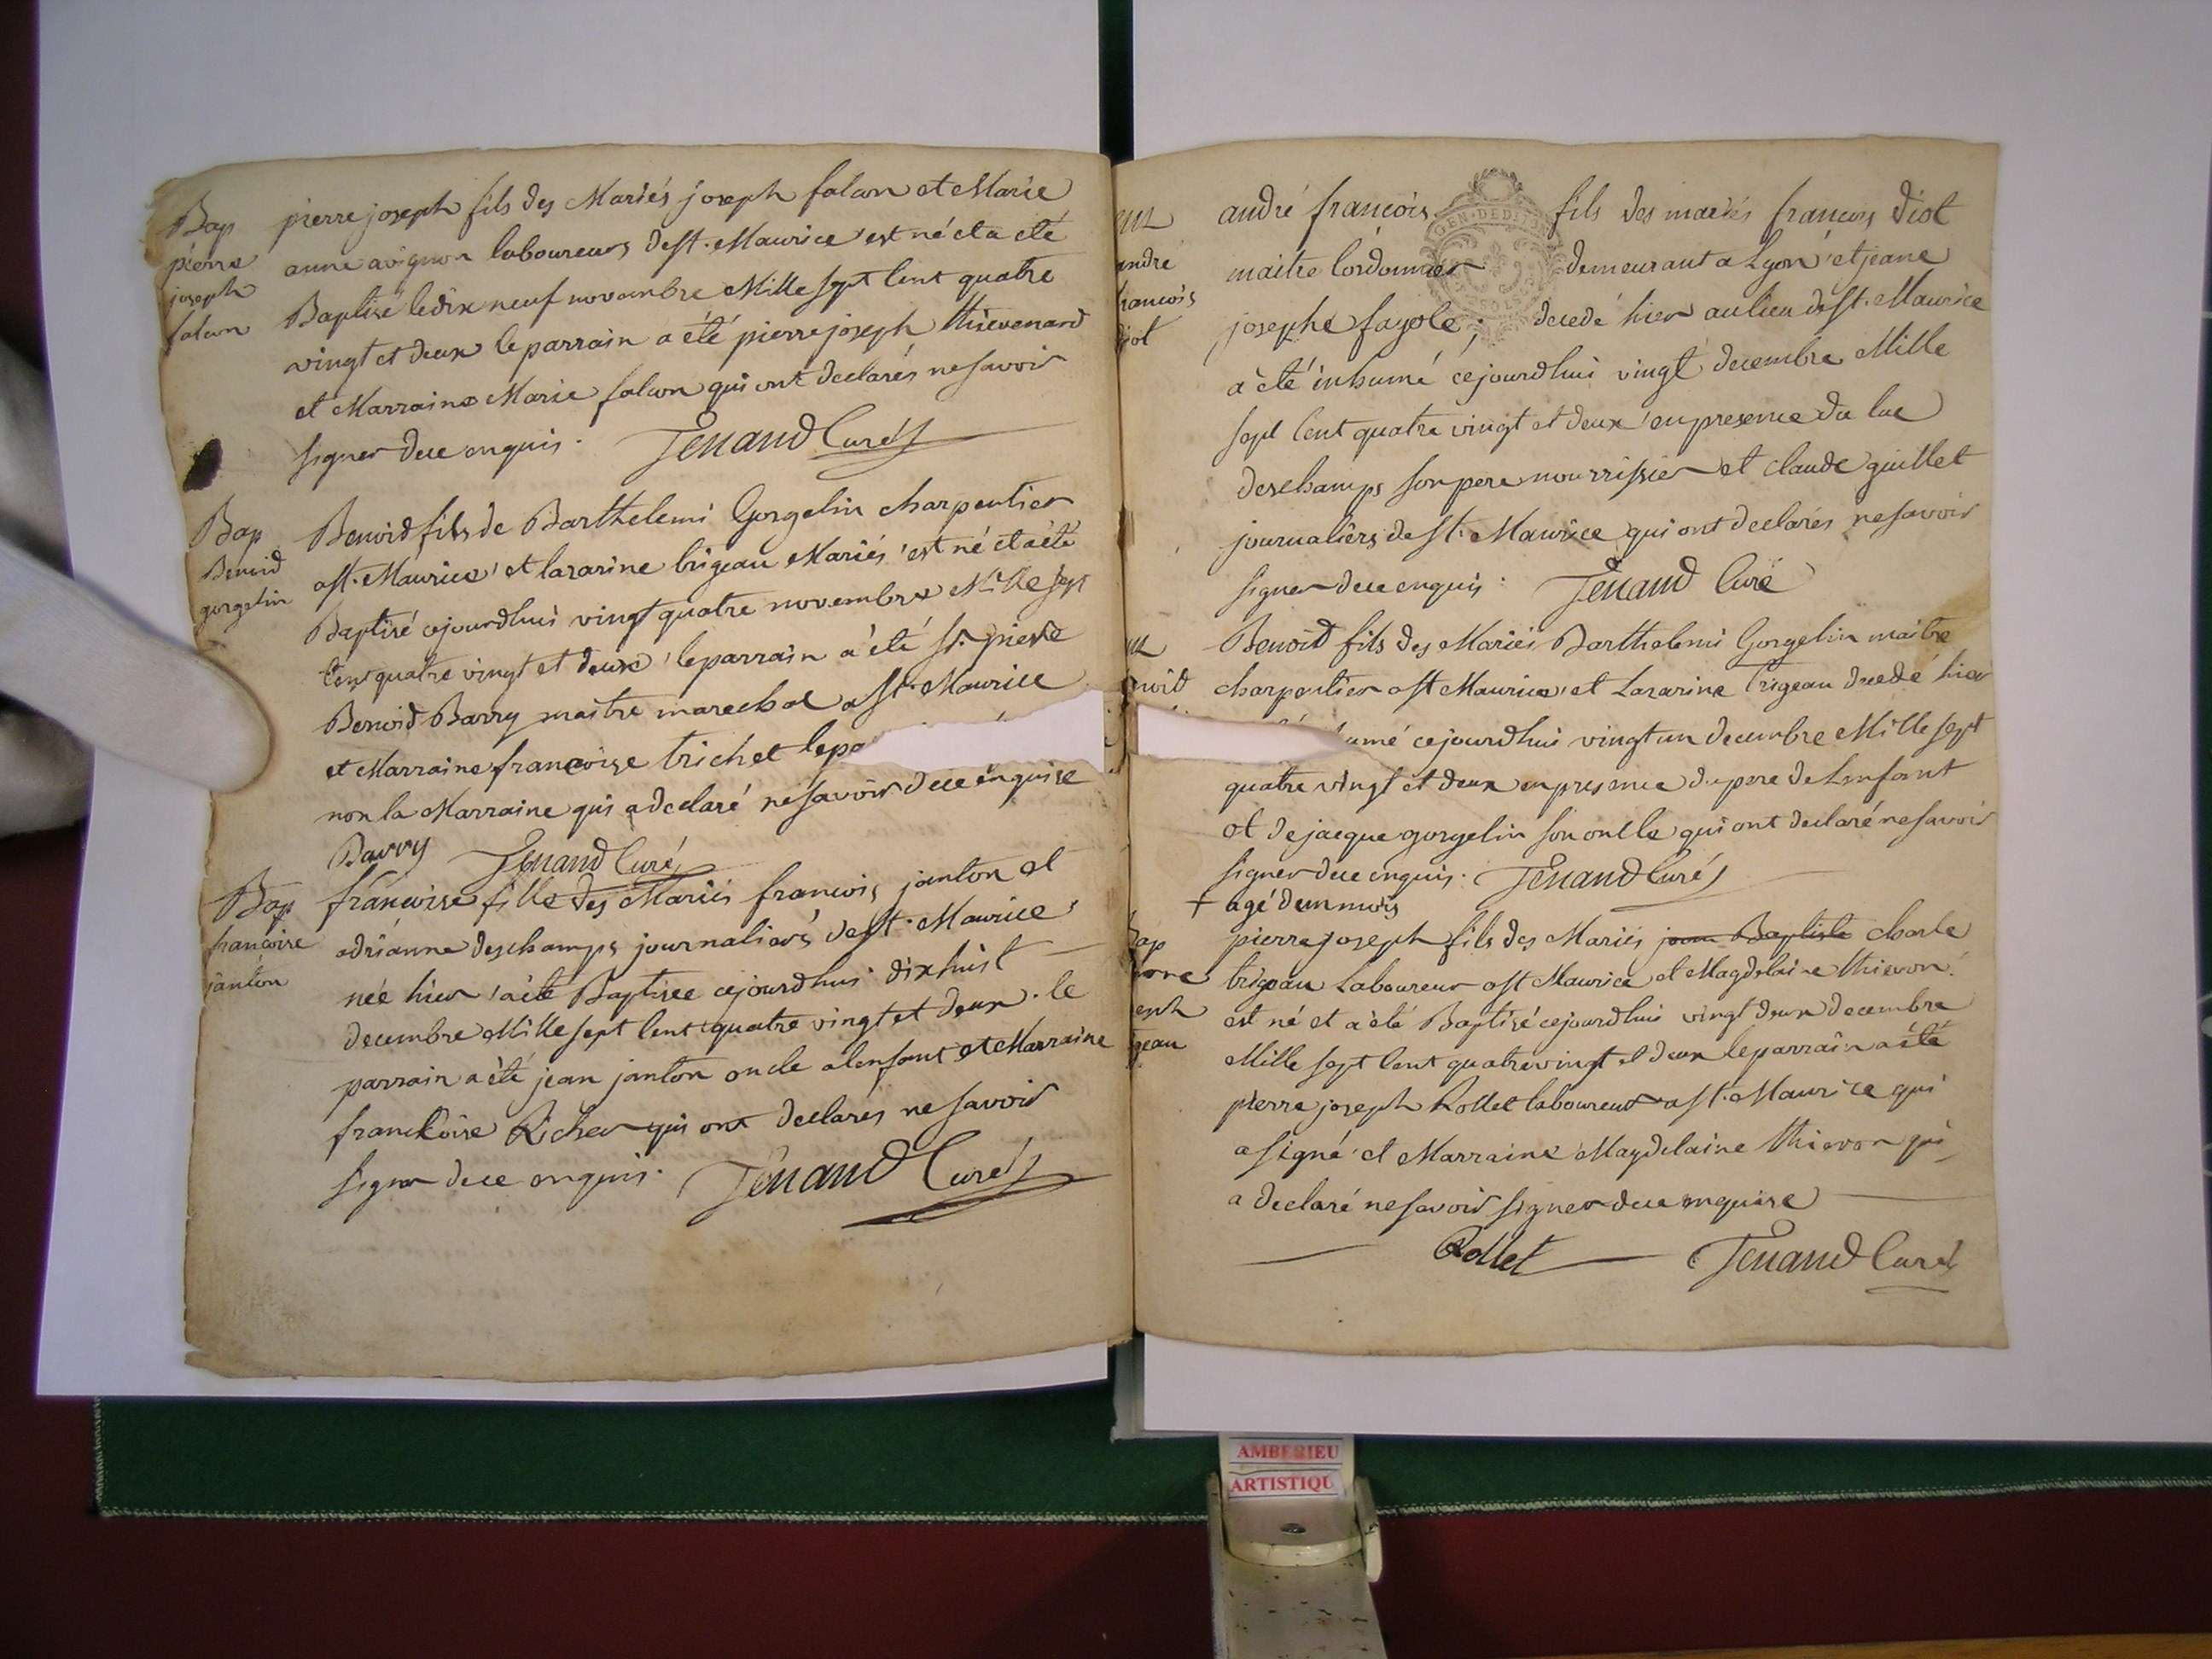 Bap
pierre
joseph
falcon
pierre joseph fils des Mariés joseph falcon et Marie
anne avignon laboureurs de st. Maurice est né et a eté
Baptisé le dix neuf novembre Mille sept Cent quatre
vingt et deux le parrain a été pierre joseph thievenard
et Marraine Marie falcon qui ont declarés ne savoir
signer de ce enquis. Tenand Curé
Bap
Benoid
gorgelin
Benoid fils de Barthelemi Gorgelin charpentier
a st. Maurice et lazarine brigeau Mariés est né et a été
Baptisé cejourdhui vingt quatre novembre Mille sept
Cent quatre vingt et deux le parrain a été sr. pierre
Benoid Barry maitre marechal a st. Maurice
et Marraine francoise trichet le pa
non la Marraine qui a declaré ne savoir de ce enquise
Barry Tenand Curé
Bap
francoise
janton
francoise fille des Mariés francois janton et
adrianne deschamps journaliers de st. Maurice
née hier a été Baptisée cejourdhui dix huit
decembre Mille sept Cent quatre vingt et deux. le
parrain a été jean janton oncle a lenfant et Marraine
francoise Richer qui ont declarés ne savoir
signer de ce enquis. Tenand Curé
andré
francois
diot
andré francois fils des mariés francois diot
maitre Cordonnier demeurant a Lyon et jeane
josephe fayole; decedé hier au lieu de st. Maurice
a été inhumé cejourdhui vingt decembre Mille
sept Cent quatre vingt et deux en presence de luc
deschamps son pere nourrissier et claude guillet
journaliers de st. Maurice qui ont declarés ne savoir
signer de ce enquis. Tenand Curé
GEN. DE DI
Benoid fils des Mariés Barthelemi Gorgelin maitre
charpentier a st Maurice et Lazarine Brigeau decedé hier
umé cejourdhui vingt un decembre Mille sept
quatre vingt et deux en presence du pere de Lenfant
et de jacque gorgelin son oncle qui ont declaré ne savoir
signer de ce enquis. Tenand Curé
+ agé dun mois
pierre joseph fils des Mariés jean Baptiste charle
brigeau Laboureur a st Maurice et Magdelaine thievon
est né et a été Baptisé cejourdhui vingt deux decembre
Mille sept Cent quatre vingt et deux le parrain a été
pierre joseph Rollet laboureur a st. Maurice qui
a signé et Marraine Magdelaine thievon qui
a declaré ne savoir signer de ce enquise
Rollet Tenand Curé
AMBERIEU
ARTISTIQU